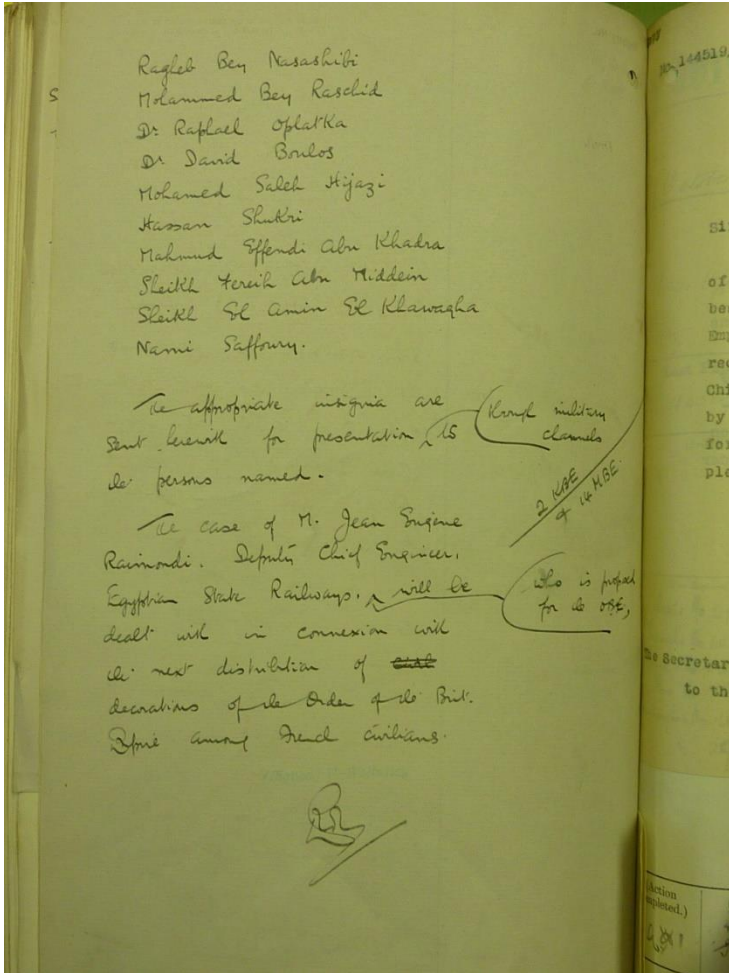 Ragheb Bey Nasashibi
Mohammed Bey Raschid
Dr. Raphael Oplatka
Dr. David Boulos
Mohamed Saleh Hijazi
Hassan Shukri
Mahmud Effendi Abu Khadra
Sheikh Fereih Abu Middein
Sheikh El Amin El Khawagha
Nami Saffoury.
The appropriate insignia are
sent herewith for presentation, to
through military
channels
the persons named.
2 KBE
& 14 MBE.
The case of M. Jean Eugène
Raimondi. Deputy Chief Engineer.
Egyptian State Railways. will be
who is proposed
for the OBE,
dealt with in connexion with
the next distribution of
decorations of the Order of the Brit.
Empire among French civilians.
No. 144519
Si
of
be
Emp
rec
Chi
by
for
ple
The Secretar
to th
(Action
completed.)